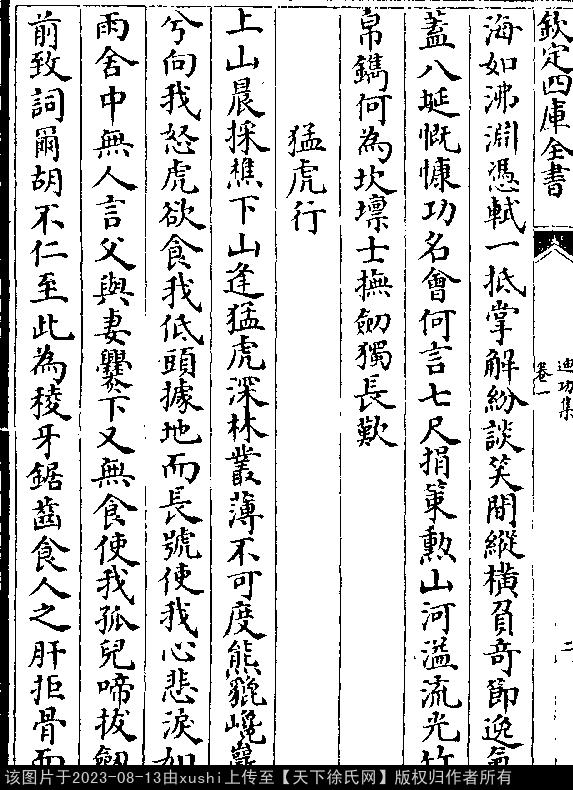 欽定四庫全書
迪功集
卷一
二
海如沸淵憑軾一抵掌解紛談笑間縱橫負奇節逸氣
蓋八埏慨慷功名會何言七尺捐策勲山河溢流光竹
帛鐫何為坎壈士撫劒獨長歎
猛虎行
上山晨採樵下山逢猛虎深林叢薄不可度熊貔巉巖
兮向我怒虎欲食我低頭據地而長號使我心悲淚如
雨舍中無人言父與妻爨下又無食使我孤兒啼拔劒
前致詞爾胡不仁至此為稜牙鋸齒食人之肝拒骨而
该图片于2023-08-13由xushi上传至【天下徐氏网】版权归作者所有